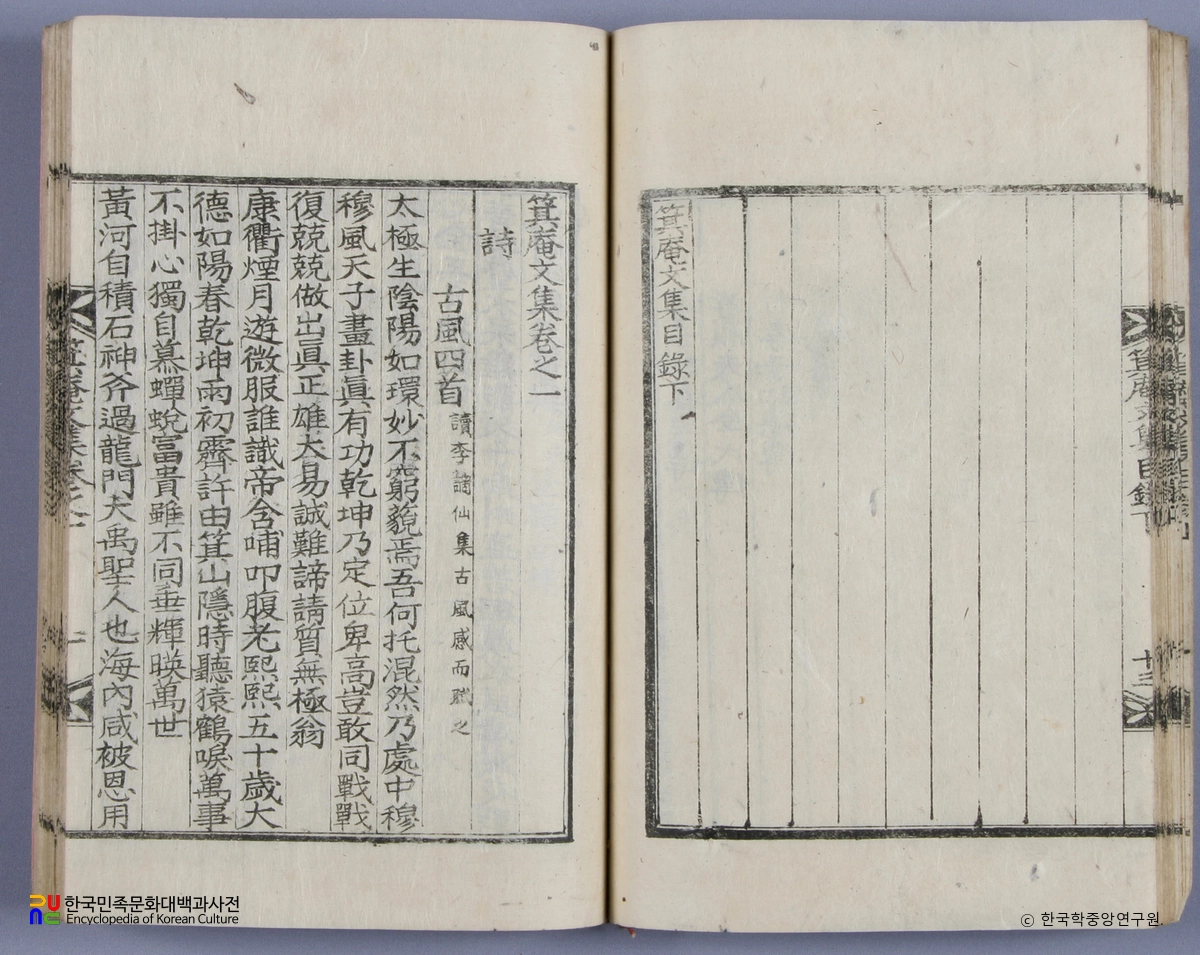 箕庵文集目錄下
十三
箕庵文集目錄下
箕庵文集卷之一
詩
古風四首 讀李謫仙集古風感而賦之
太極生陰陽如環妙不窮藐焉吾何托混然乃處中穆
穆風天子畫卦眞有功乾坤乃定位卑高豈敢同戰戰
復兢兢做出眞正雄大易誠難諦請質無極翁
康衢煙月遊微服誰識帝含哺叩腹老熙熙五十歲大
德如陽春乾坤雨初霽許由箕山隱時聽猿鶴唳萬事
不掛心獨自慕蟬蛻富貴雖不同垂輝暎萬世
黃河自積石神斧過龍門大禹聖人也海內咸被恩用
箕庵文集卷之一
한국민족문화대백과사전
Encyclopedia of Korean Culture
ⓒ 한국학중앙연구원